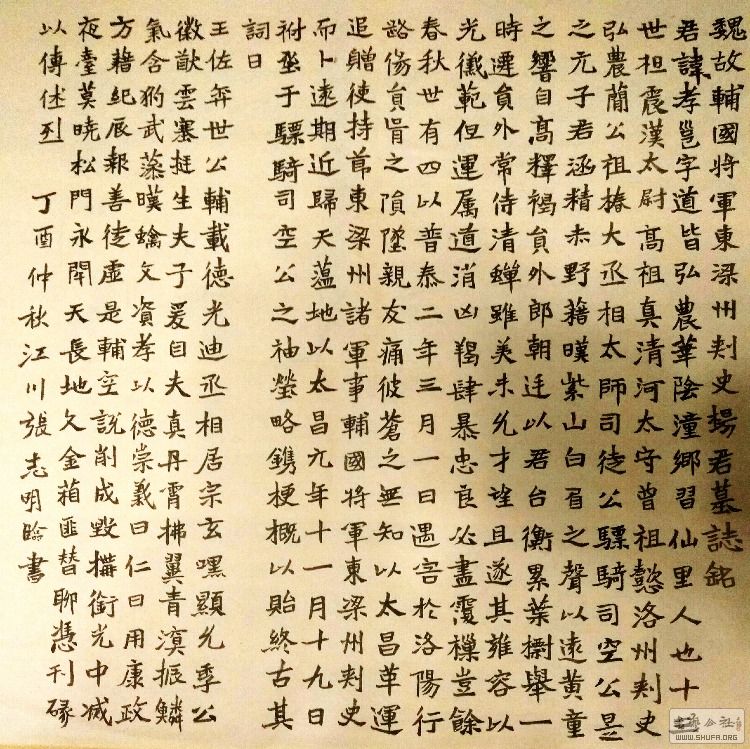 魏故輔國將軍東梁州刾史楊君墓誌銘
君諱孝邕字道皆弘農華陰潼鄉習仙里人也十
世祖震漢太尉高祖真清河太守曾祖懿洛州刾史
弘農簡公祖椿大丞相太師司徒公驃騎司空公是
之元子君涵精赤野藉暎紫山白眉之聲以遠黃童
之響自高釋褐員外郎朝廷以君台衡累葉擢舉一
時遷員外常侍清蟬雖美未允才望且遂其雍容以
光儀範但運属道消凶羯肆暴忠良必盡覆樔豈餘
春秋世有四以普泰二年三月一日遇害於洛陽行
路傷貟眚之隕墜親友痛彼蒼之無知以太昌革運
追贈使持莭東梁州諸軍事輔國將軍東梁州刾史
而卜遠期近歸天蕰地以太昌元年十一月十九日
祔塟于驃騎司空公之神塋略鐫梗概以貽終古其
詞曰
王佐弈世公輔載德光迪丞相居宗玄嘿顯允季公
徽猷雲塞挺生夫子爰自夫真丹霄拂翼青溟振鱗
氣含豹武藻暎螭文資孝以德崇義曰仁日用康政
方藉紀辰報善徒虛是輔空説削成毀攡銜光中滅
夜臺莫曉松門永閇天長地久金葙匪替聊憑刊琭
以傳休烈
丁酉仲秋江川張志明臨書
WWW.SHUFA.ORG